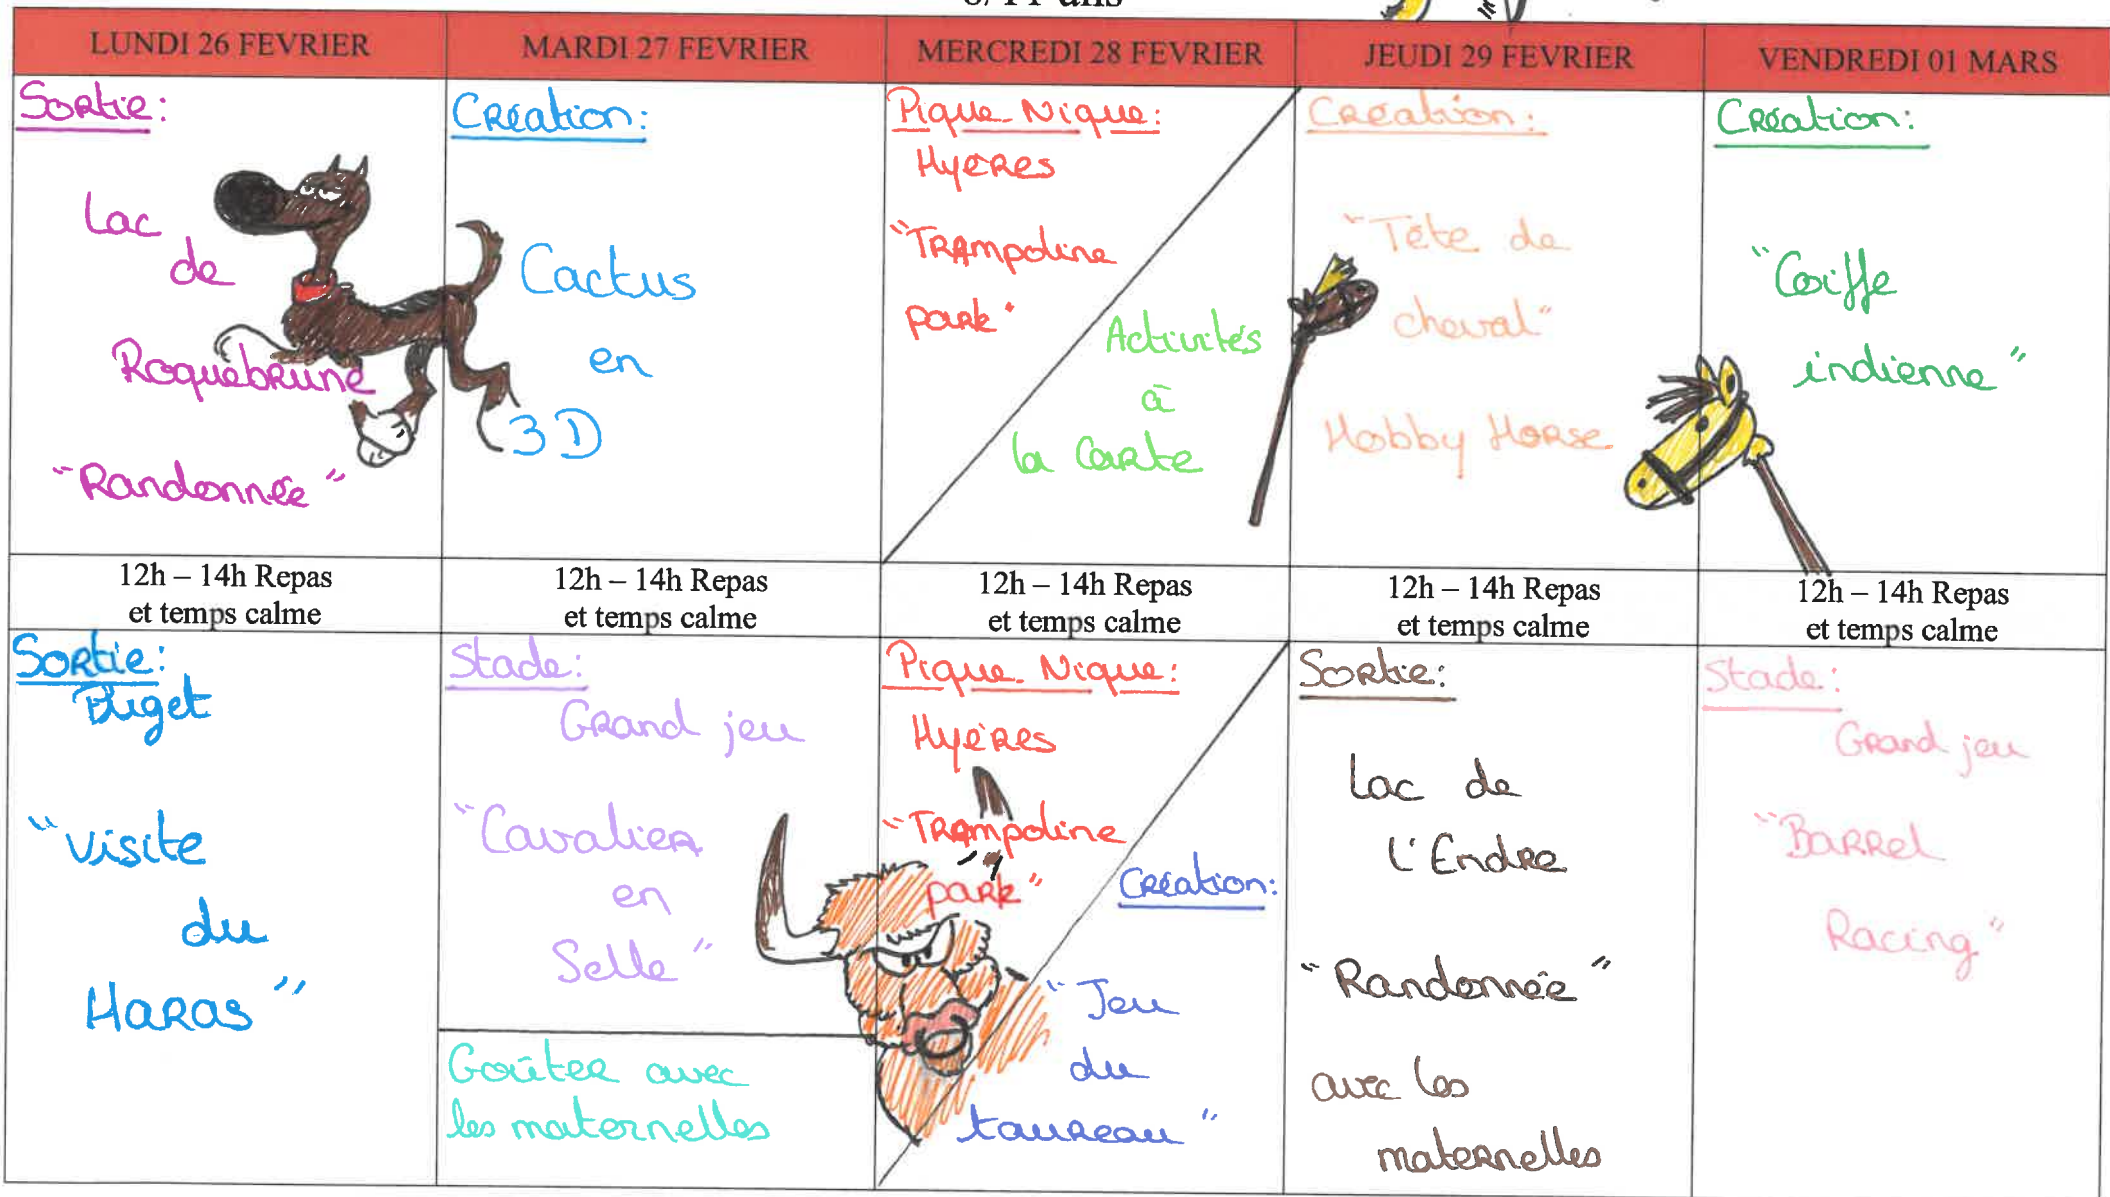 6/11 ans
LUNDI 26 FEVRIER
MARDI 27 FEVRIER
MERCREDI 28 FEVRIER
JEUDI 29 FEVRIER
VENDREDI 01 MARS
Sortie:
Lac
de
Roquebrune
"Randonnée"
Création:
Cactus
en
3D
Pique Nique:
Hyères
"Trampoline
park"
Activités
à
la Carte
Création:
"Tête de
cheval"
Hobby Horse
Création:
"Coiffe
indienne"
12h – 14h Repas
et temps calme
12h – 14h Repas
et temps calme
12h – 14h Repas
et temps calme
12h – 14h Repas
et temps calme
12h – 14h Repas
et temps calme
Sortie:
Puget
"Visite
du
Haras"
Stade:
Grand jeu
"Cavalier
en
Selle"
Goûter avec
les maternelles
Pique Nique:
Hyères
"Trampoline
park"
Création:
"Jeu
du
taureau"
Sortie:
Lac de
l'Endre
"Randonnée"
avec les
maternelles
Stade:
Grand jeu
"Barrel
Racing"